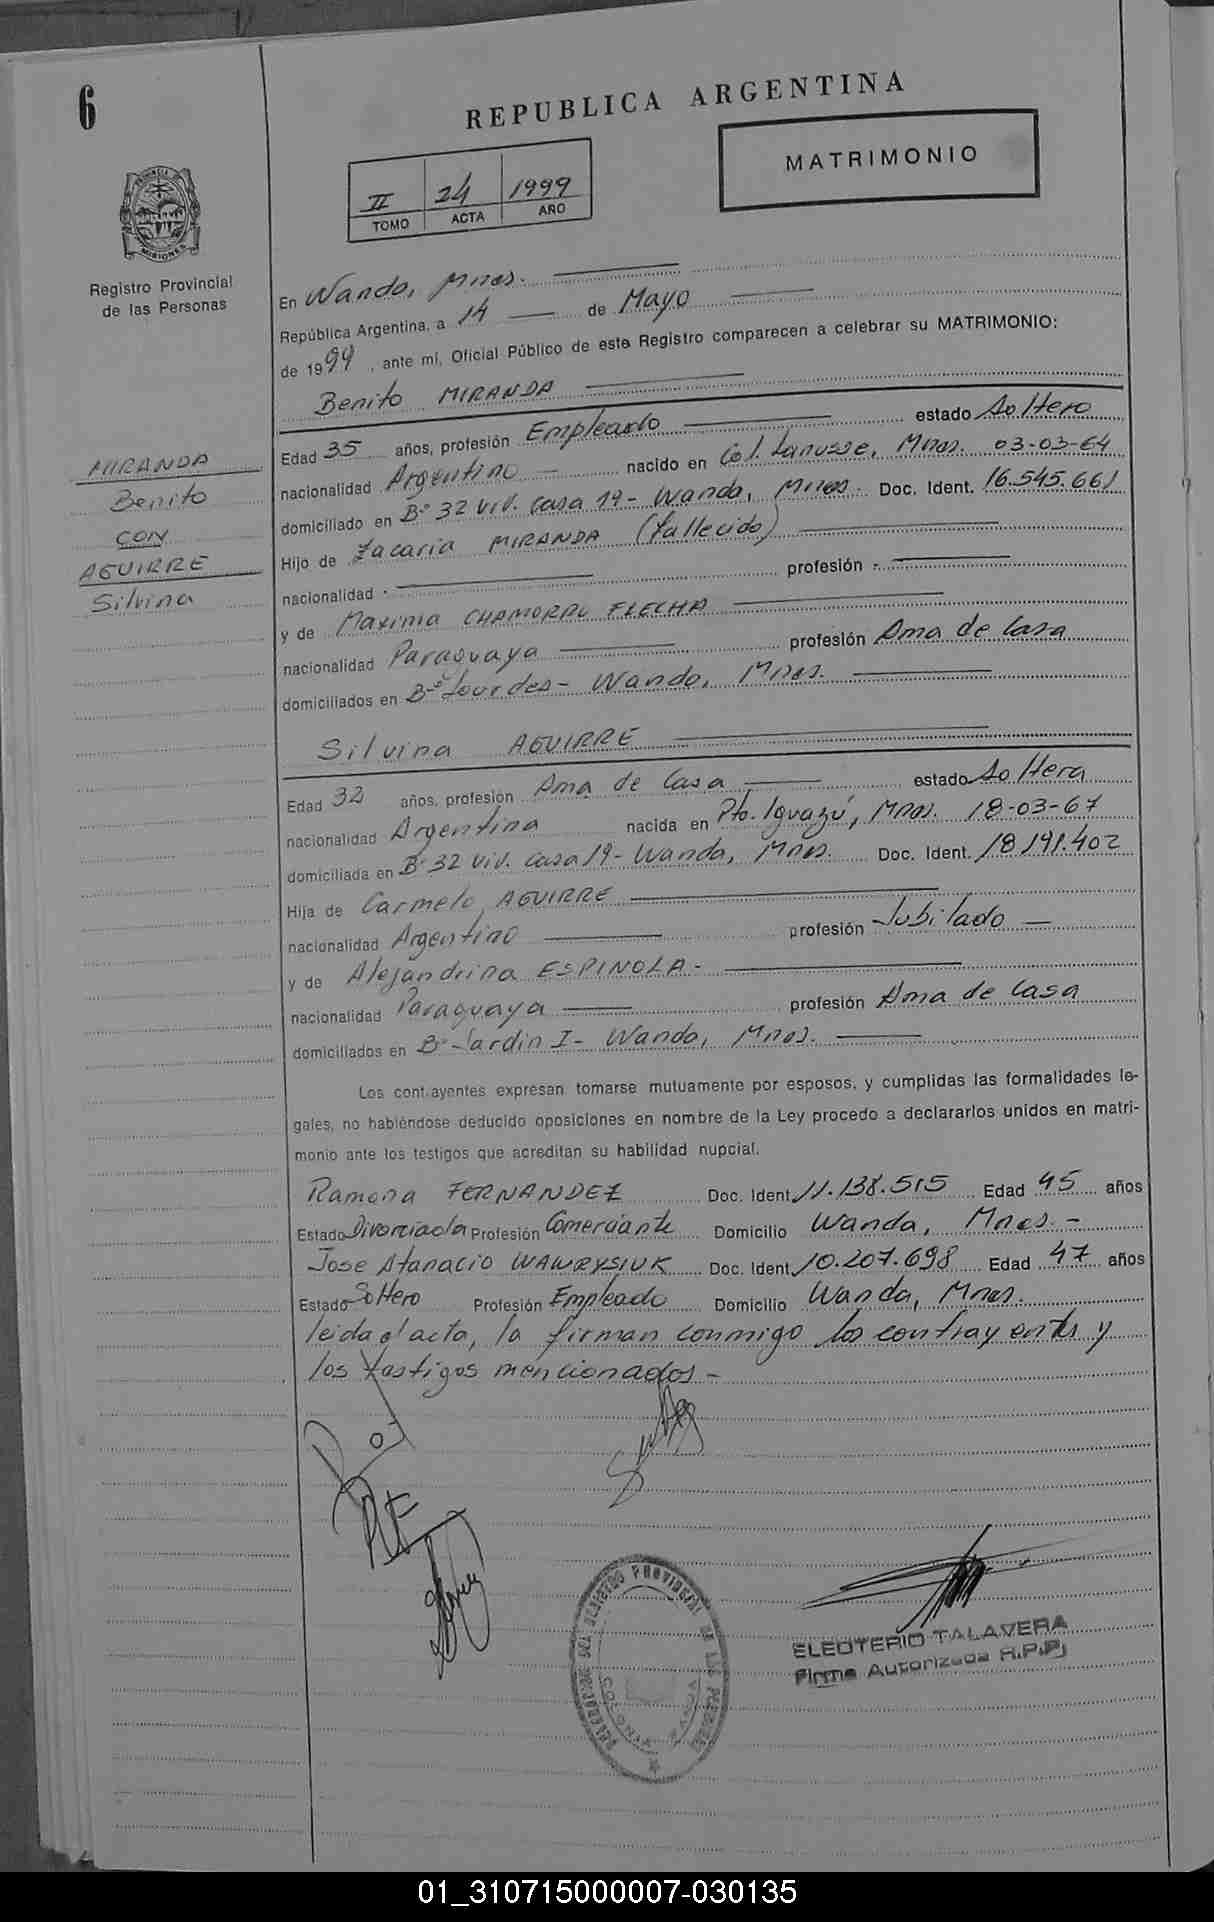 6
REPUBLICA ARGENTINA
MATRIMONIO
II 24 1999
TOMO ACTA AÑO
PROVINCIA DE MISIONES
Registro Provincial
de las Personas
En Wanda, Mnes.
República Argentina, a 14 de Mayo
de 1999, ante mí, Oficial Público de este Registro comparecen a celebrar su MATRIMONIO:
Benito MIRANDA
MIRANDA
Benito
CON
AGUIRRE
Silvina
Edad 35 años, profesión Empleado estado Soltero
nacionalidad Argentino nacido en Col. Lanusse, Mnes. 03-03-64
domiciliado en Bº 32 viv. casa 19 - Wanda, Mnes. Doc. Ident. 16.545.661
Hijo de Zacaria MIRANDA (fallecido)
nacionalidad - profesión -
y de Maxima CHAMORRO FLECHA
nacionalidad Paraguaya profesión Ama de Casa
domiciliados en Bº Lourdes - Wanda, Mnes.
Silvina AGUIRRE
Edad 32 años, profesión Ama de Casa estado Soltera
nacionalidad Argentina nacida en Pto. Iguazú, Mnes. 18-03-67
domiciliada en Bº 32 viv. casa 19 - Wanda, Mnes. Doc. Ident. 18.191.402
Hija de Carmelo AGUIRRE
nacionalidad Argentino profesión Jubilado
y de Alejandrina ESPINOLA -
nacionalidad Paraguaya profesión Ama de Casa
domiciliados en Bº Jardin I - Wanda, Mnes.
Los contrayentes expresan tomarse mutuamente por esposos, y cumplidas las formalidades le-
gales, no habiéndose deducido oposiciones en nombre de la Ley procedo a declararlos unidos en matri-
monio ante los testigos que acreditan su habilidad nupcial.
Ramona FERNANDEZ Doc. Ident. 11.138.515 Edad 45 años
Estado Divorciada Profesión Comerciante Domicilio Wanda, Mnes. -
Jose Atanacio WAWRYSIUK Doc. Ident. 10.207.698 Edad 47 años
Estado Soltero Profesión Empleado Domicilio Wanda, Mnes.
leida el acta, la firman conmigo los contrayentes y
los testigos mencionados -
DELEGACION DEL REGISTRO PROVINCIAL DE LAS PERSONAS
COLONIA WANDA
ELEOTERIO TALAVERA
Firma Autorizada R.P.P.
01_310715000007-030135